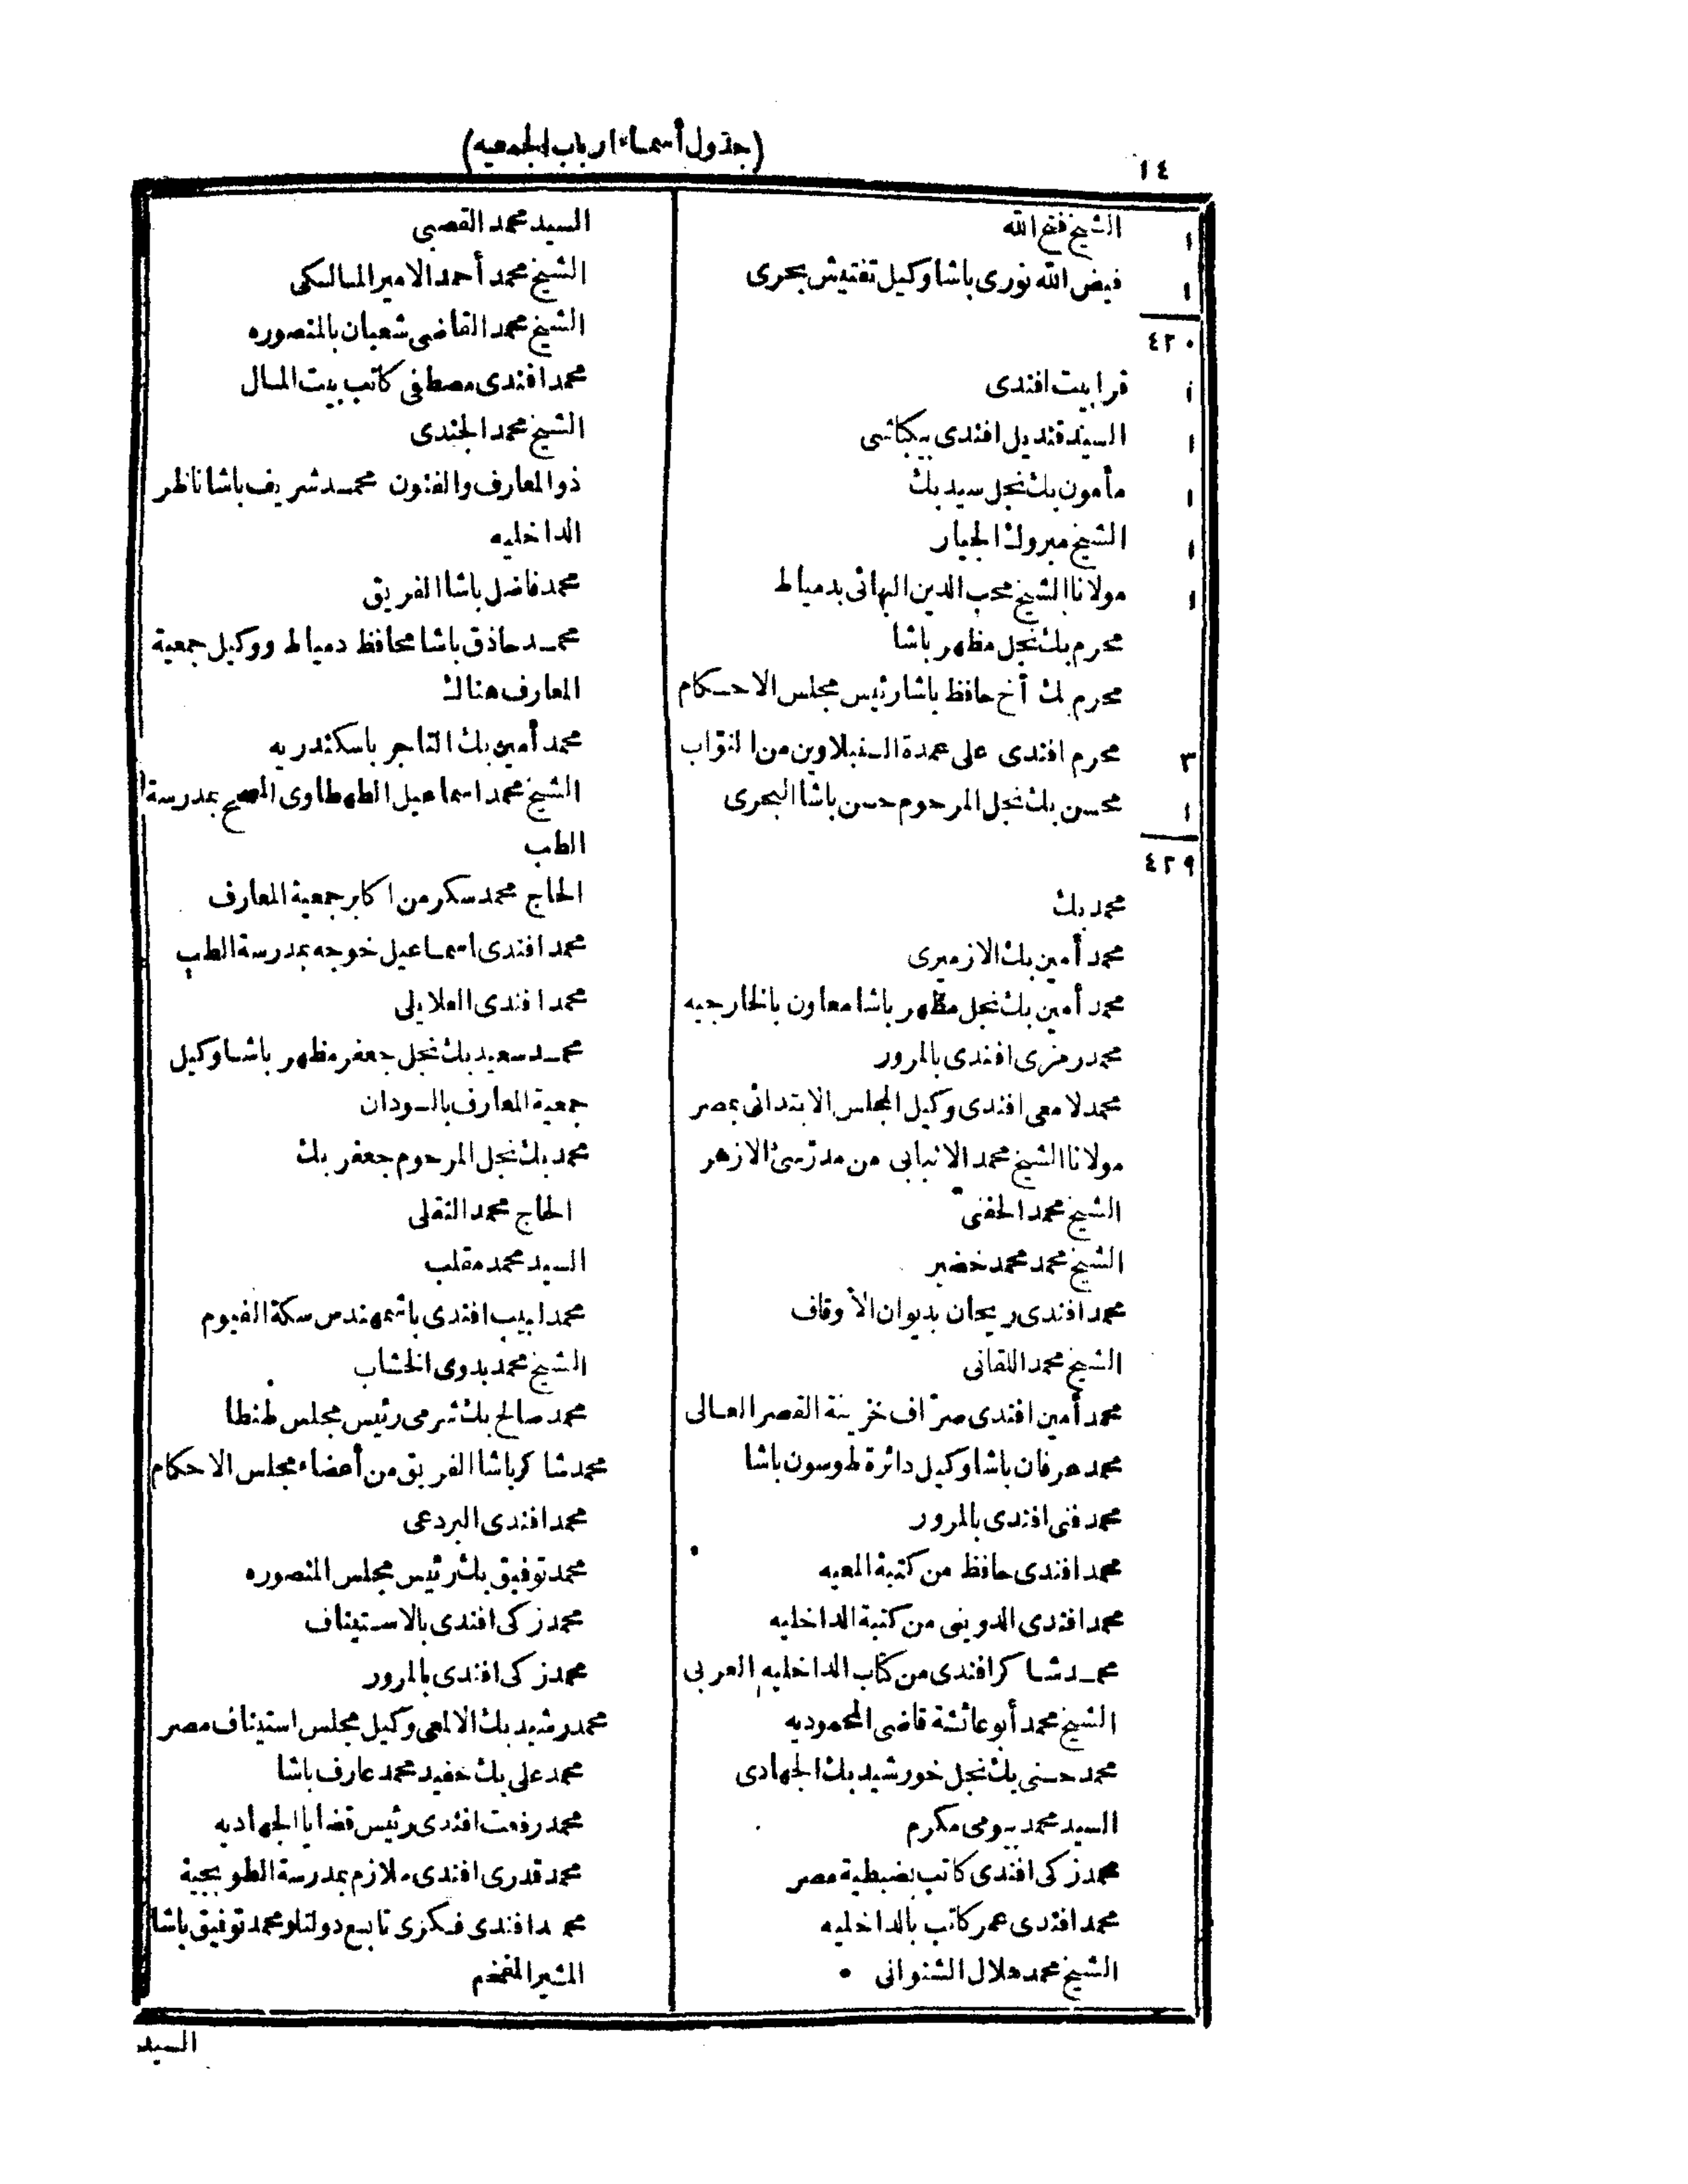 ١٤
(جدول أسماء ارباب الجمعيه)
١ الشيخ فتح الله
١ فيض الله نورى باشا وكيل تفتيش بحرى
٤٢٠
١ قرابيت افندى
١ السيد قنديل افندى بيكباشى
١ مأمون بك نجل سيد بك
١ الشيخ مبروك الجيار
١ مولانا الشيخ محب الدين البهائى بدمياط
محرم بك نجل مظهر باشا
محرم بك أخ حافظ باشا رئيس مجلس الاحكام
٣ محرم افندى على عمدة السنبلاوين من النواب
١ محسن بك نجل المرحوم حسن باشا البحرى
٤٢٩
محمد بك
محمد أمين بك الازميرى
محمد أمين بك نجل مظهر باشا معاون بالخارجيه
محمد رمزى افندى بالمرور
محمد لامعى افندى وكيل المجلس الابتدائى بمصر
مولانا الشيخ محمد الانبابى من مدرّسى الازهر
الشيخ محمد الحفنى
الشيخ محمد محمد خضير
محمد افندى ريحان بديوان الأوقاف
الشيخ محمد اللقانى
محمد أمين افندى صرّاف خزينة القصر العالى
محمد عرفان باشا وكيل دائرة طوسون باشا
محمد فنى افندى بالمرور
محمد افندى حافظ من كتبة المعيه
محمد افندى الدوينى من كتبة الداخليه
محمد شاكر افندى من كتاب الداخليه العربى
الشيخ محمد أبو عائشة قاضى المحموديه
محمد حسنى بك نجل خورشيد بك الجهادى
السيد محمد بيومى مكرم
محمد زكى افندى كاتب بضبطية مصر
محمد افندى عمر كاتب بالداخليه
الشيخ محمد هلال الشنوانى
السيد محمد القصبى
الشيخ محمد أحمد الامير المالكى
الشيخ محمد القاضى شعبان بالمنصوره
محمد افندى مصطفى كاتب بيت المال
الشيخ محمد الجندى
ذو المعارف والفنون محمد شريف باشا ناظر
الداخليه
محمد فاضل باشا الفريق
محمد حاذق باشا محافظ دمياط ووكيل جمعية
المعارف هناك
محمد أمين بك التاجر باسكندريه
الشيخ محمد اسماعيل الطهطاوى المصحح بمدرسة
الطب
الحاج محمد سكر من اكابر جمعية المعارف
محمد افندى اسماعيل خوجه بمدرسة الطب
محمد افندى العلايلى
محمد سعيد بك نجل جعفر مظهر باشا وكيل
جمعية المعارف بالسودان
محمد بك نجل المرحوم جعفر بك
الحاج محمد النقلى
السيد محمد مقلب
محمد لبيب افندى باشمهندس سكة الفيوم
الشيخ محمد بدوى الخشاب
محمد صالح بك شرمى رئيس مجلس طنطا
محمد شاكر باشا الفريق من أعضاء مجلس الاحكام
محمد افندى البردعى
محمد توفيق بك رئيس مجلس المنصوره
محمد زكى افندى بالاستيناف
محمد زكى افندى بالمرور
محمد رشيد بك الالمعى وكيل مجلس استيناف مصر
محمد على بك حفيد محمد عارف باشا
محمد رفعت افندى رئيس قضايا الجهاديه
محمد قدرى افندى ملازم بمدرسة الطوبجية
محمد افندى فكرى تابع دولتلو محمد توفيق باشا
المشير المفخم
السيد